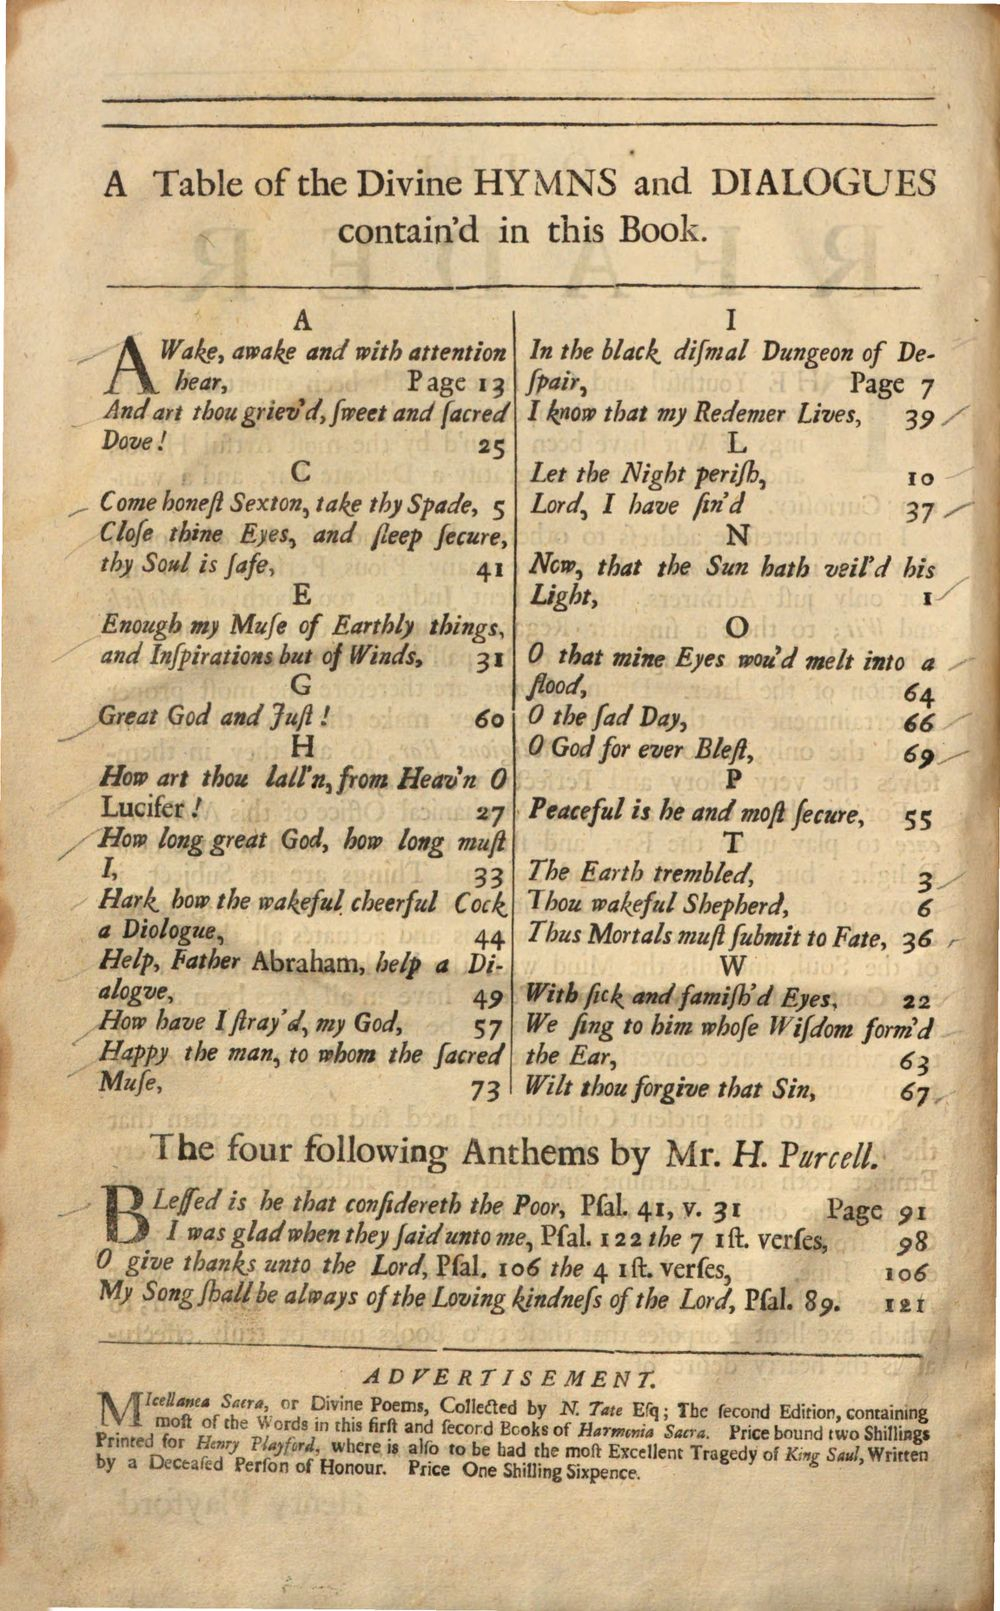 A Table of the Divine HYMNS and DIALOGUES
contain'd in this Book.
A
AWake, awake and with attention
hear, Page 13
And art thou griev'd, ſweet and ſacred
Dove! 25
C
Come honeſt Sexton, take thy Spade, 5
Cloſe thine Eyes, and ſleep ſecure,
thy Soul is ſafe, 41
E
Enough my Muſe of Earthly things,
and Inſpirations but of Winds, 31
G
Great God and Juſt! 60
H
How art thou lall'n, from Heav'n O
Lucifer! 27
How long great God, how long muſt
I, 33
Hark how the wakeful cheerful Cock
a Diologue, 44
Help, Father Abraham, help a Di-
alogve, 49
How have I ſtray'd, my God, 57
Happy the man, to whom the ſacred
Muſe, 73
I
In the black diſmal Dungeon of De-
ſpair, Page 7
I know that my Redemer Lives, 39
L
Let the Night periſh, 10
Lord, I have ſin'd 37
N
Now, that the Sun hath veil'd his
Light, 1
O
O that mine Eyes wou'd melt into a
flood, 64
O the ſad Day, 66
O God for ever Bleſt, 69
P
Peaceful is he and moſt ſecure, 55
T
The Earth trembled, 3
Thou wakeful Shepherd, 6
Thus Mortals muſt ſubmit to Fate, 36
W
With ſick and famiſh'd Eyes, 22
We ſing to him whoſe Wiſdom form'd
the Ear, 63
Wilt thou forgive that Sin, 67
The four following Anthems by Mr. H. Purcell.
BLeſſed is he that conſidereth the Poor, Pſal. 41, v. 31 Page 91
I was glad when they ſaid unto me, Pſal. 122 the 7 1ſt. verſes, 98
O give thanks unto the Lord, Pſal. 106 the 4 1ſt. verſes, 106
My Song ſhall be always of the Loving kindneſs of the Lord, Pſal. 89. 121
ADVERTISEMENT.
MIcellanea Sacra, or Divine Poems, Collected by N. Tate Eſq; The ſecond Edition, containing
moſt of the Words in this firſt and ſecord Books of Harmonia Sacra. Price bound two Shillings
Printed for Henry Playford, where is alſo to be had the moſt Excellent Tragedy of King Saul, Written
by a Deceaſed Perſon of Honour. Price One Shilling Sixpence.